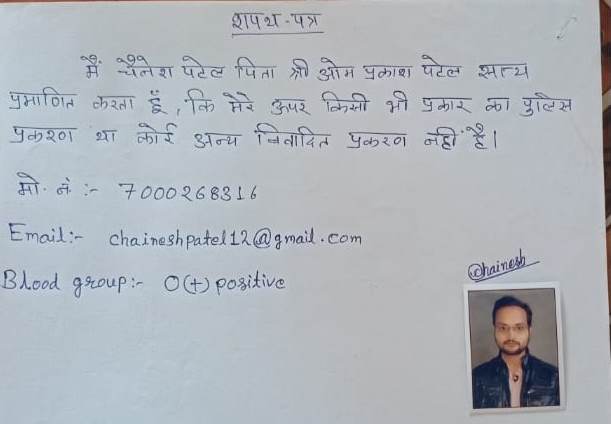 शपथ-पत्र
मैं चैनेश पटेल पिता श्री ओम प्रकाश पटेल सत्य
प्रमाणित करता हूँ, कि मेरे ऊपर किसी भी प्रकार का पुलिस
प्रकरण या कोई अन्य विवादित प्रकरण नहीं है।
मो. नं :- 7000268316
Email:- chaineshpatel12@gmail.com
Blood group:- O(+) positive
Chainesh